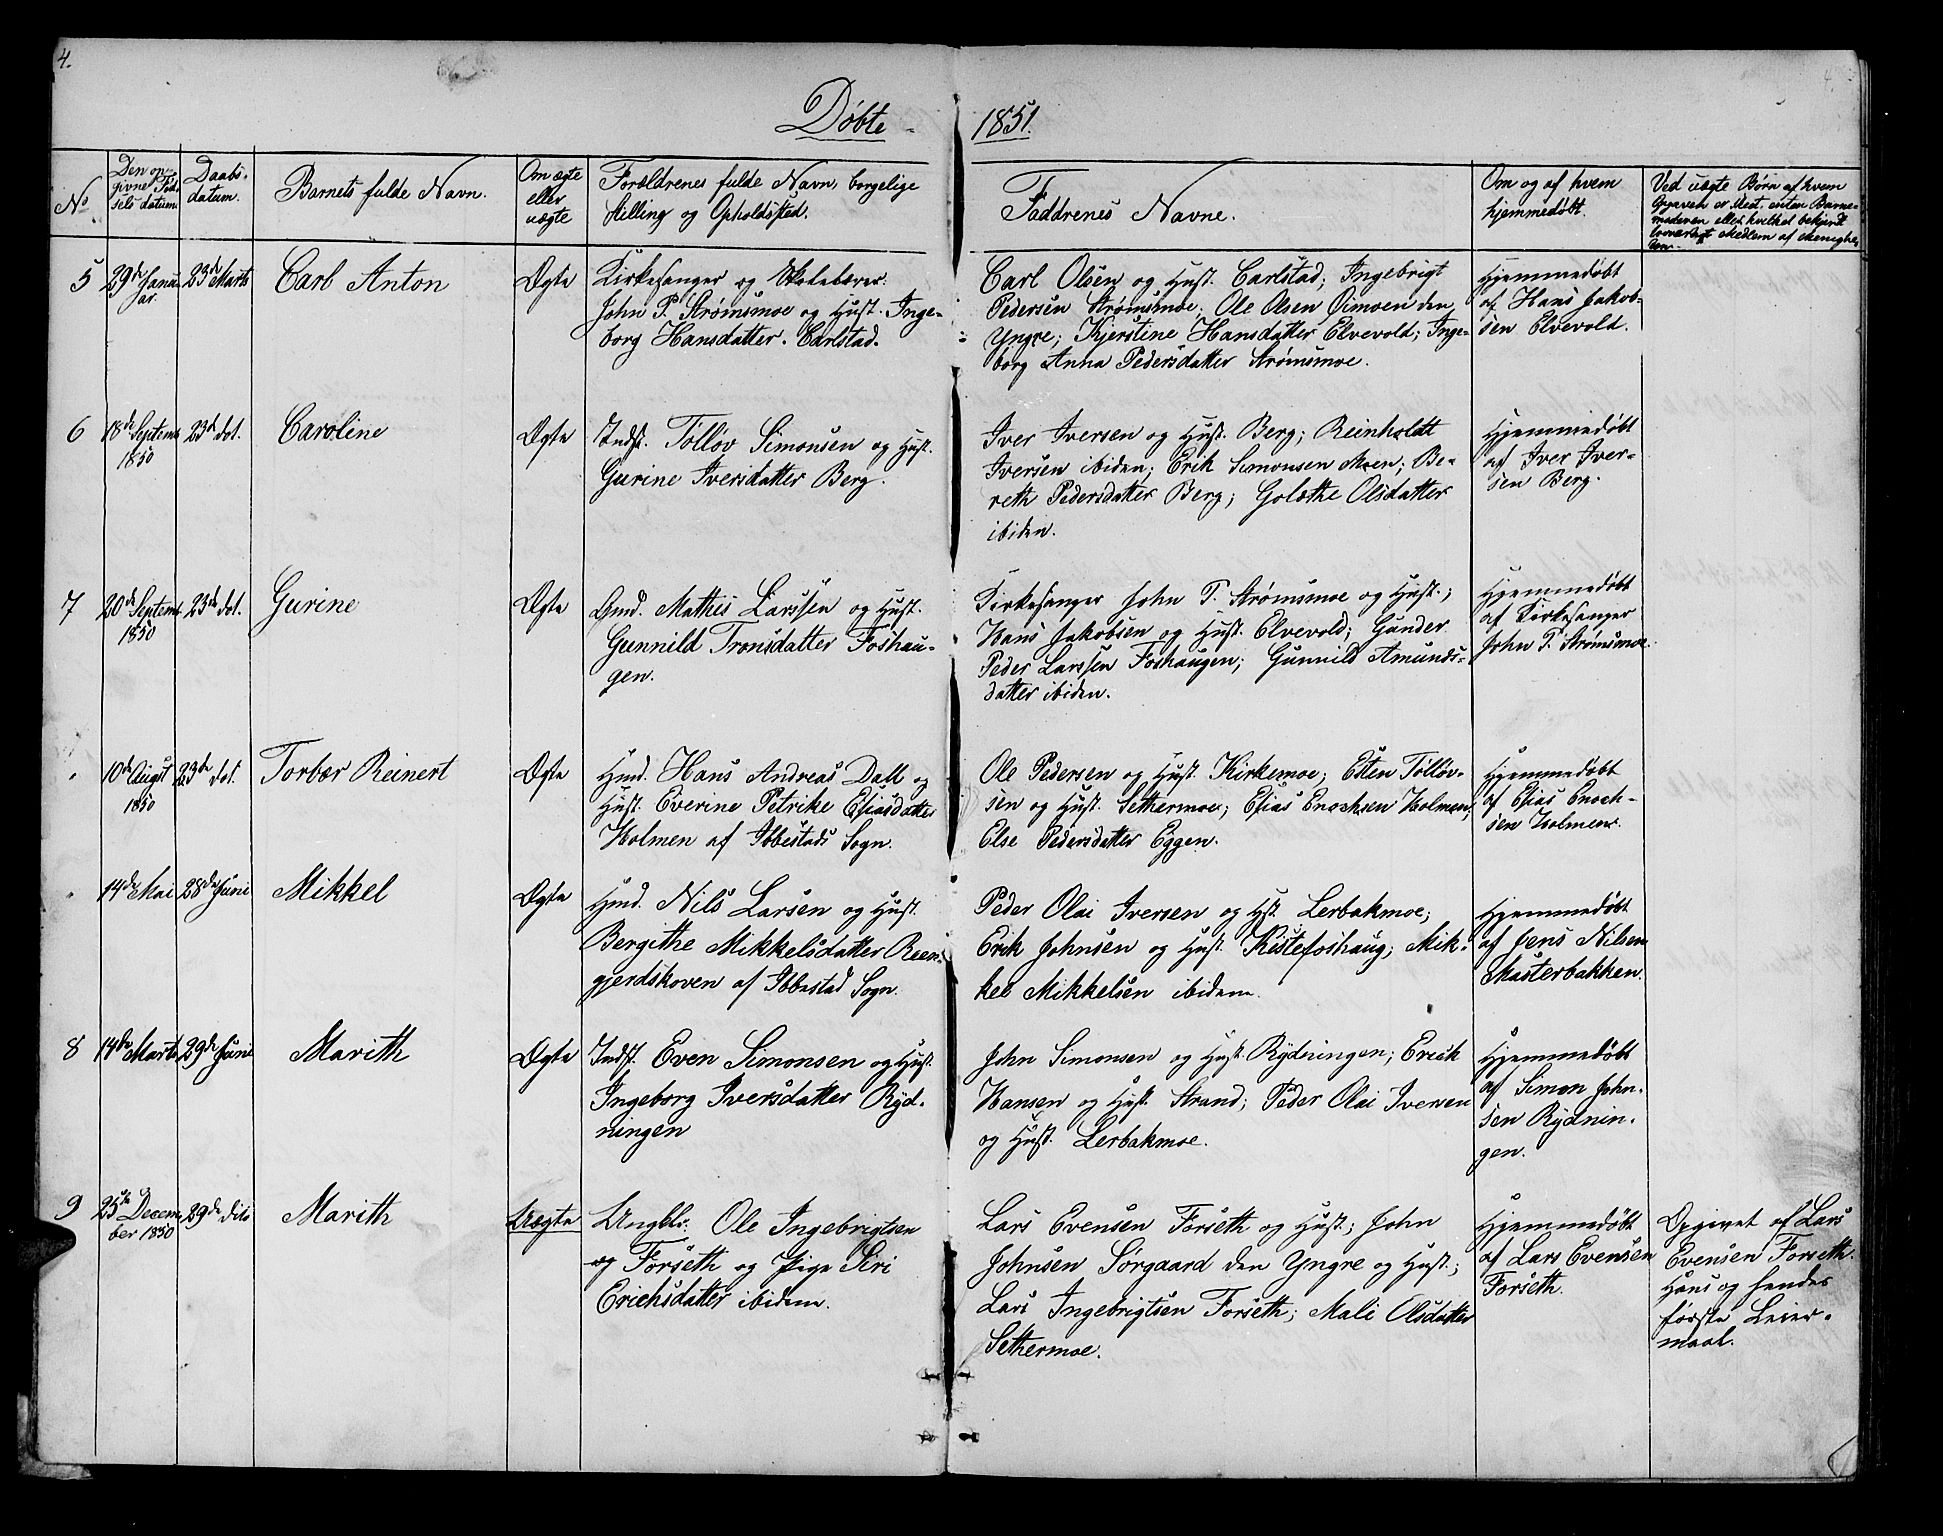 4.
Døbte - 1851.
No
Den op-
givne Fød-
sels datum.
Daabs-
datum.
Barnets fulde Navn.
Om ægte
eller
uægte
Forældrenes fulde Navn, borgelige
Stilling og Opholdssted.
Faddrenes Navne.
Om og af hvem
hjemmedøbt.
Ved uægte Børn af hvem
Opgaven er skeet. enten Barne-
moderen eller hvilket bekjendt
troværdigt Medlem af Menighe
den.
5
29de Janu
ar.
23de Marts
Carl Anton
Ægte
Kirkesanger og Skolelærer.
John P. Strømsmoe og Hust. Inge-
borg Hansdatter. Carlstad.
Carl Olsen og Hust. Carlstad; Ingebrigt
Pedersen Strømsmoe; Ole Olsen Øimoen den
Yngre; Kjerstine Hansdatter Elvevold; Inge-
borg Anna Pedersdatter Strømsmoe.
Hjemmedøbt
af Hans Jakob-
sen Elvevold.
6
18de Septem
1850
23de dot.
Caroline
Ægte
Indst. Tolløv Simonsen og Hust.
Gurine Iversdatter Berg.
Iver Iversen og Hust. Berg; Reinholdt
Iversen ibiden; Erik Simonsen Moen; Be-
reth Pedersdatter Berg; Golæthe Olsdatter
ibiden.
Hjemmedøbt
af Iver Iver-
sen Berg.
7
20de Septem
1850
23de dot.
Gurine
Ægte
Gmd. Mathis Larssen og Hust.
Gunnild Tronsdatter Foshau-
gen.
Kirkesanger John P. Strømsmoe og Hust.;
Hans Jakobsen og Hust. Elvevold; Gunder
Peder Larssen Foshaugen; Gunnild Amunds-
datter ibiden.
Hjemmedøbt
af Kirkesanger
John P. Strømsmoe.
"
10de August
1850
23de dot.
Torbær Reinert
Ægte
Hmd. Hans Andreas Dall og
Hust. Everine Petrike Eliasdatter
Holmen af Ibbestads Sogn.
Ole Pedersen og Hust. Kirkemoe; Esten Tolløv-
sen og Hust. Sethermoe; Elias Enochsen Holmen;
Else Pedersdatter Eggen.
Hjemmedøbt
af Elias Enoch-
sen Holmen.
"
14de Mai
28de Juni
Mikkel
Ægte
Hmd. Nils Larsen og Hust.
Bergithe Mikkelsdatter Reen-
gjerdskoven af Ibbestad Sogn.
Peder Olai Iversen og Hst. Lerbakmoe;
Erik Johnsen og Hust. Kistefoshaug; Mik-
kel Mikkelsen ibidem.
Hjemmedøbt
af Jens Nilsen
Masterbakken.
8
14de Marts
29de Juni
Marith
Ægte
Indst. Even Simonsen og Hust.
Ingeborg Iversdatter Ryd-
ningen
John Simonsen og Hust. Rydningen; Erick
Hansen og Hust. Strand; Peder Olai Iversen
og Hust. Lerbakmoe.
Hjemmedøbt
af Simon John-
sen Rydnin-
gen.
9
25de Decem
ber 1850
29de dito
Marith
Uægte
Ungkl. Ole Ingebrigtsen
og Forseth og Pige Siri
Erichsdatter ibidem.
Lars Evensen Forseth og Hust.; John
Johnsen Sørgaard den Yngre og Hust.;
Lars Ingebrigtsen Forseth; Mali Olsdatter
Sethermoe.
Hjemmedøbt
af Lars Evensen
Forseth.
Opgivet af Lars
Evensen Forseth.
Hans og hendes
første Leier-
maal.